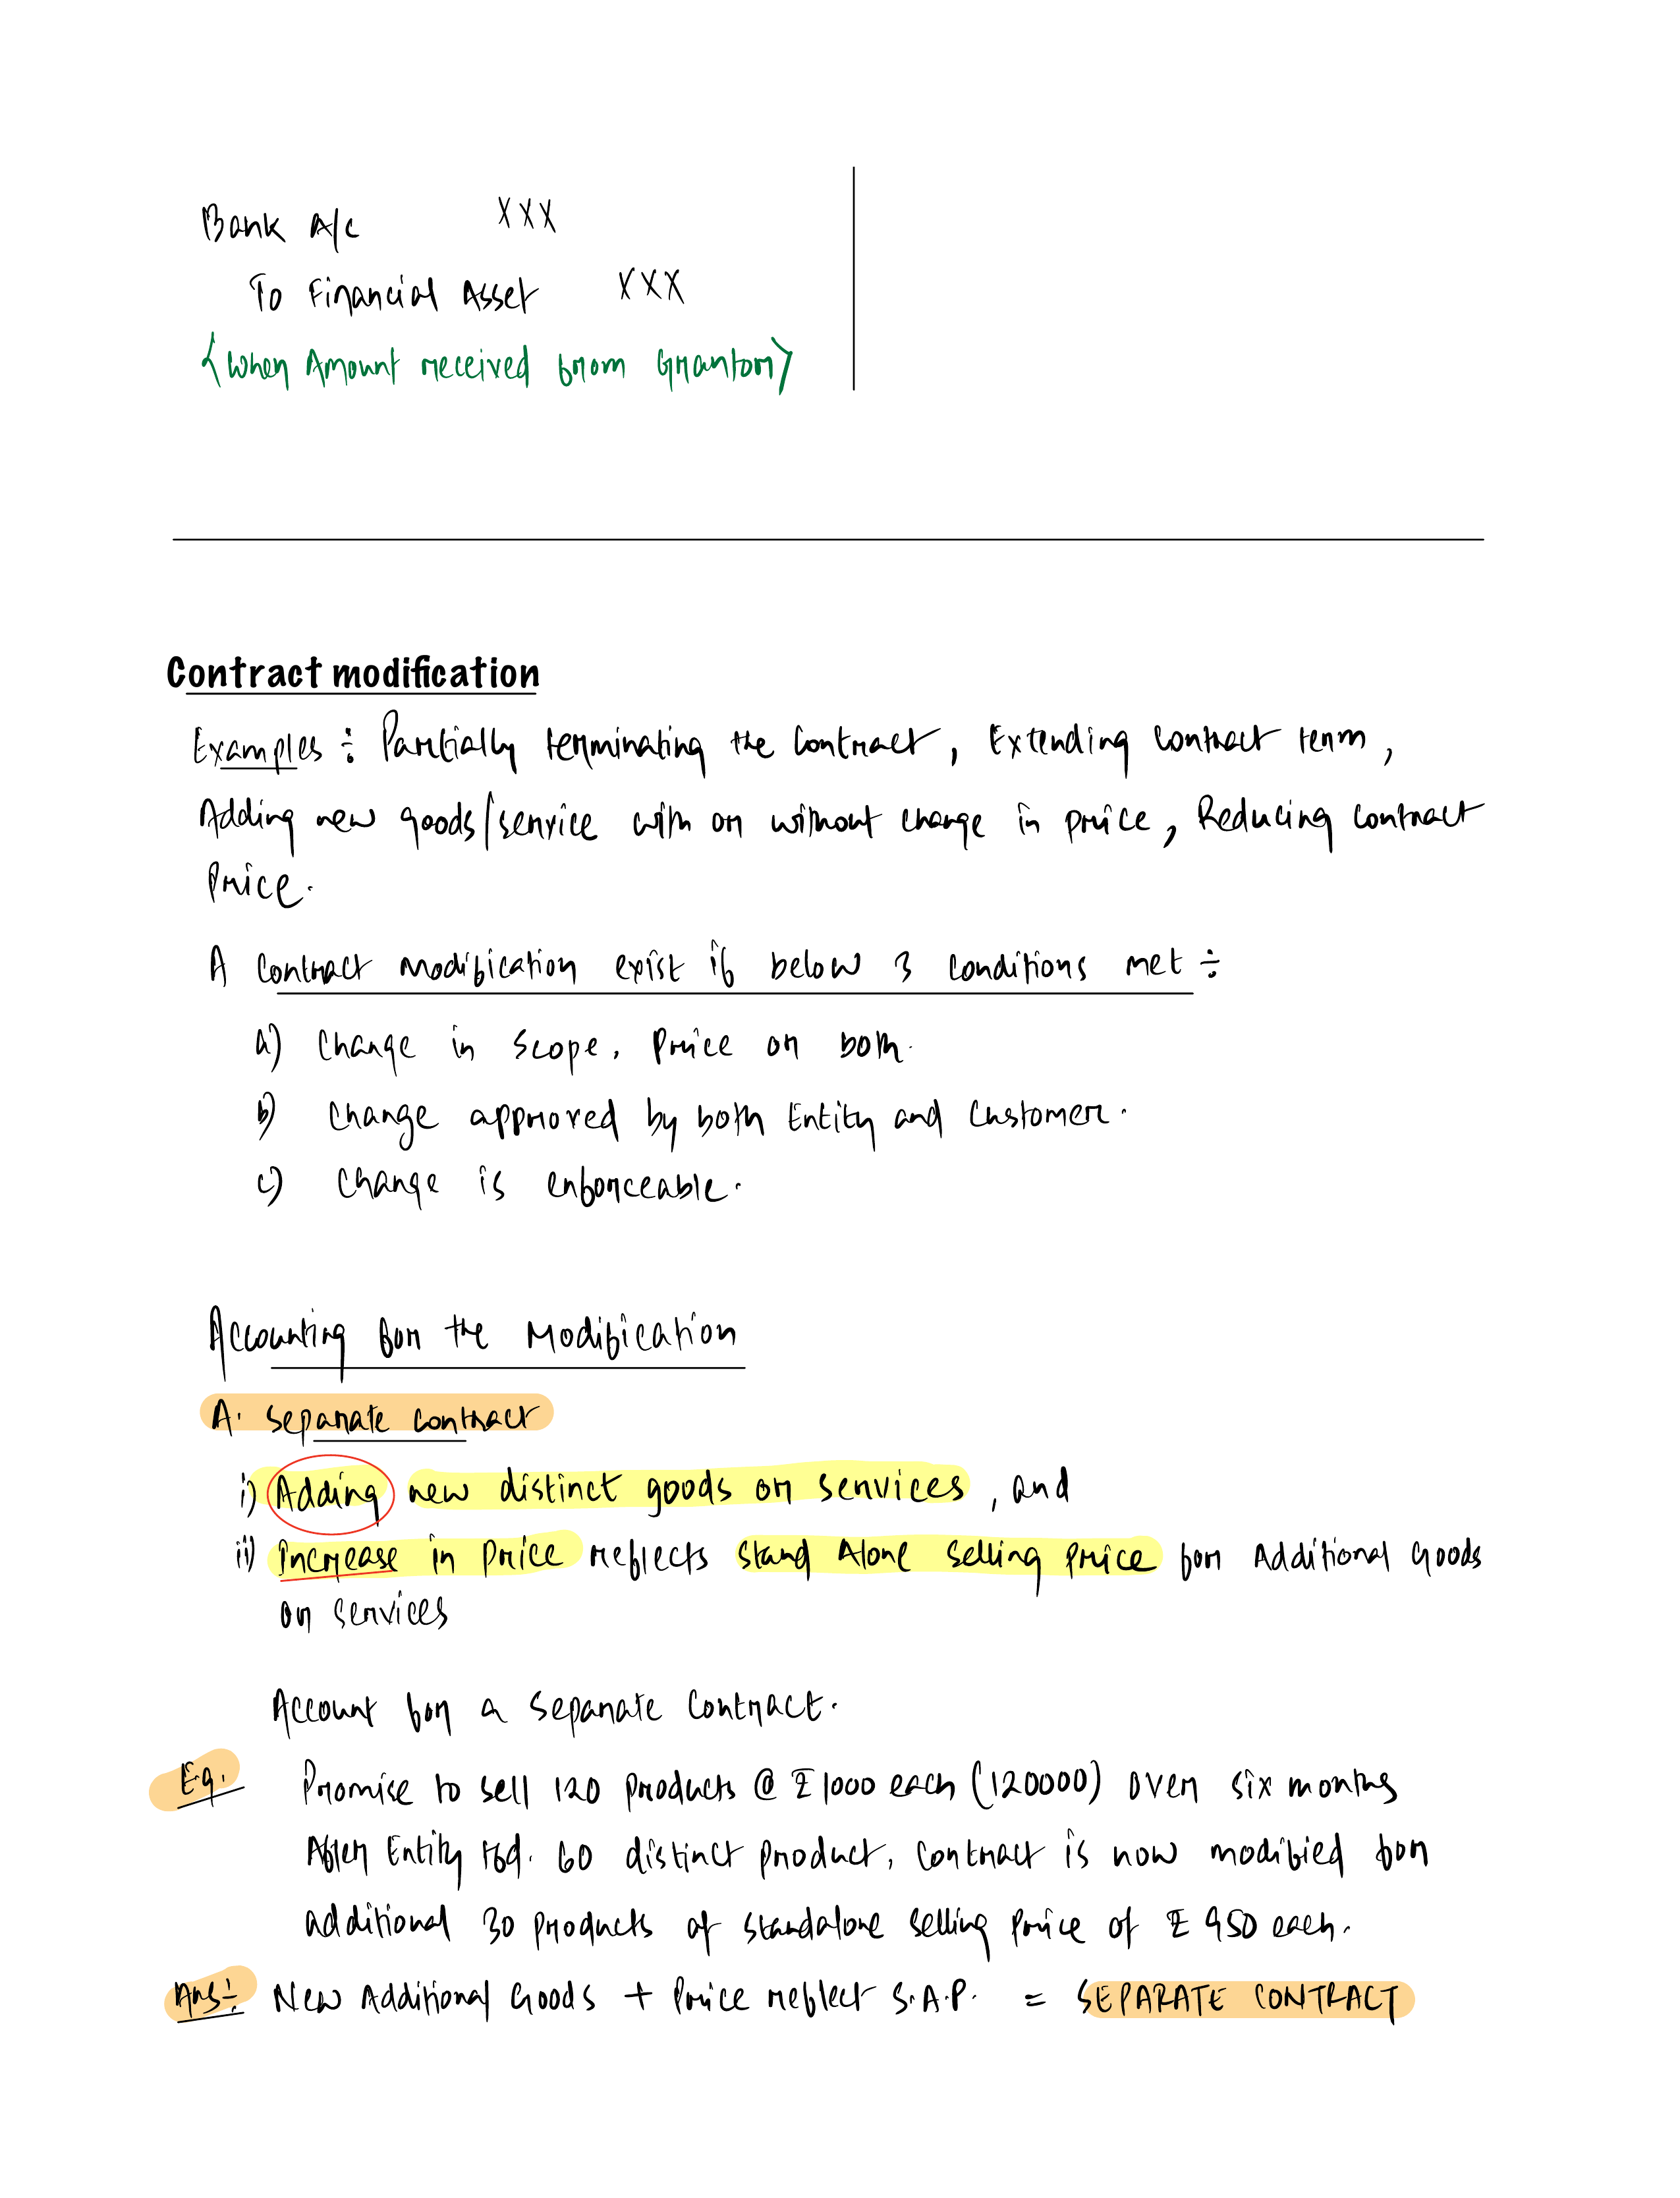 Bank A/c XXX
To Financial Asset XXX
{When Amount received from Grantor}
Contract modification
Examples ÷ Partially terminating the Contract, Extending contract term,
Adding new goods/service with or without change in price, Reducing contract
Price.
A Contract modification exist if below 3 conditions met ÷
a) Change in scope, Price or both.
b) Change approved by both Entity and Customer.
c) Change is enforceable.
Accounting for the Modification
A. Separate contract
i) Adding new distinct goods or services, and
ii) Increase in Price reflects Stand Alone Selling Price for Additional Goods
or Services
Account for a Separate Contract.
Eg. Promise to sell 120 products @ ₹1000 each (120000) over six months
After Entity tfd. 60 distinct product, Contract is now modified for
additional 30 products at standalone selling price of ₹950 each.
Ans÷ New Additional Goods + Price reflect S.A.P. = SEPARATE CONTRACT